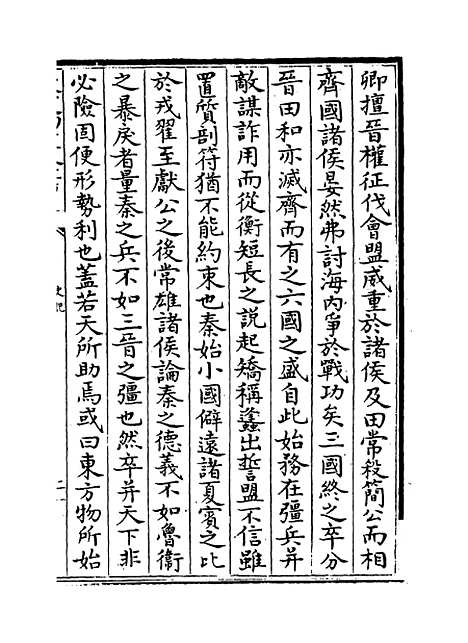 卿擅晉權征伐會盟威重於諸侯及田常殺簡公而相
齊國諸侯晏然弗討海内爭於戰功矣三國終之卒分
晉田和亦滅齊而有之六國之盛自此始務在彊兵并
敵謀詐用而從衡短長之説起矯稱蠭出誓盟不信雖
置質剖符猶不能約束也秦始小國僻遠諸夏賓之比
於戎翟至獻公之後常雄諸侯論秦之德義不如魯衞
之暴戾者量秦之兵不如三晉之彊也然卒并天下非
必險固便形勢利也蓋若天所助焉或曰東方物所始